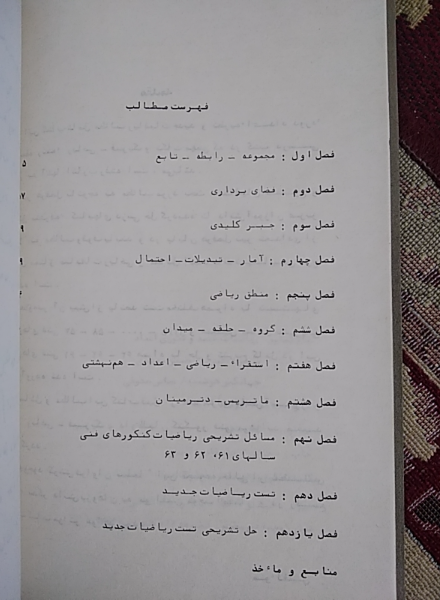 فهرست مطالب
فصل اول : مجموعه ــ رابطه ــ تابع ۵
فصل دوم : فضای برداری ۷
فصل سوم : جبر کلیدی ۹
فصل چهارم : آمار ــ تبدیلات ــ احتمال ۹
فصل پنجم : منطق ریاضی
فصل ششم : گروه ــ حلقه ــ میدان
فصل هفتم : استقراء ــ ریاضی ــ اعداد ــ هم‌نهشتی
فصل هشتم : ماتریس ــ دترمینان
فصل نهم : مسائل تشریحی ریاضیات کنکورهای فنی
سالهای ۶۱، ۶۲ و ۶۳
فصل دهم : تست ریاضیات جدید
فصل یازدهم : حل تشریحی تست ریاضیات جدید
منابع و مآخذ